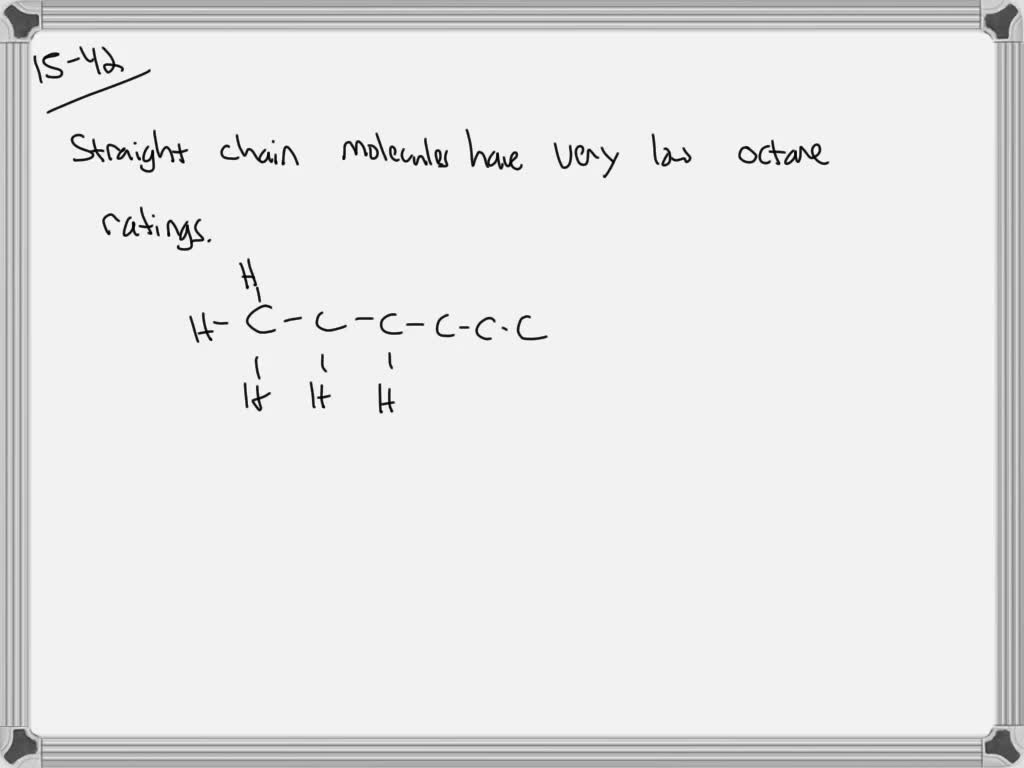 15-42
Straight chain molecules have very low octane
ratings.
H
H- C - C - C - C - C - C
H H H